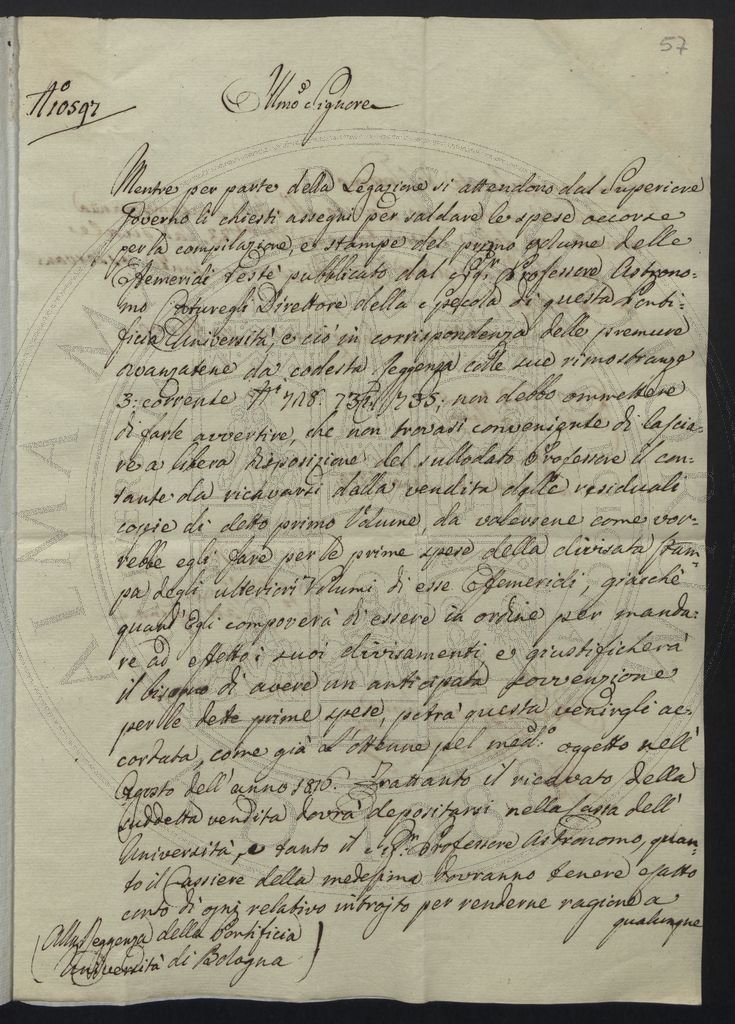 57
N.º 10597
Illmo Signore
Mentre per parte della Legazione si attendono dal Superiore
Governo li chiesti assegni per saldare le spese occorse
per la compilazione, e stampe del primo volume delle
Effemeridi testè pubblicato dal Sig.r Professore Astrono-
mo Caturegli Direttore della Specola di questa Ponti-
ficia Università, e ciò in corrispondenza delle premure
avanzatene da codesta Reggenza colle sue rimostranze
3. corrente N.i 718. 735; non debbo ommettere
di farle avvertire, che non trovasi conveniente di lascia-
re a libera disposizione del sullodato Professore il con-
tante da ricavarsi dalla vendita delle residuali
copie di detto primo Volume, da valersene come vor-
rebbe egli fare per le prime spese della divisata stam-
pa degli ulteriori Volumi di esse Effemeridi, giacchè
quand'Egli comproverà di essere in ordine per manda-
re ad effetto i suoi divisamenti e giustificherà
il bisogno di avere un anticipata sovvenzione
per le dette prime spese, potrà questa venirgli ac-
cordata, come già l'ottenne pel med.º oggetto nell'
Agosto dell'anno 1816. Frattanto il ricavato della
suddetta vendita dovrà depositarsi nella Cassa dell'
Università, e tanto il Sig.r Professore Astronomo, quan-
to il Cassiere della medesima dovranno tenere esatto
conto di ogni relativo introjto per renderne ragione a
qualunque
(Alla Reggenza della Pontificia
Università di Bologna)
ALMA M